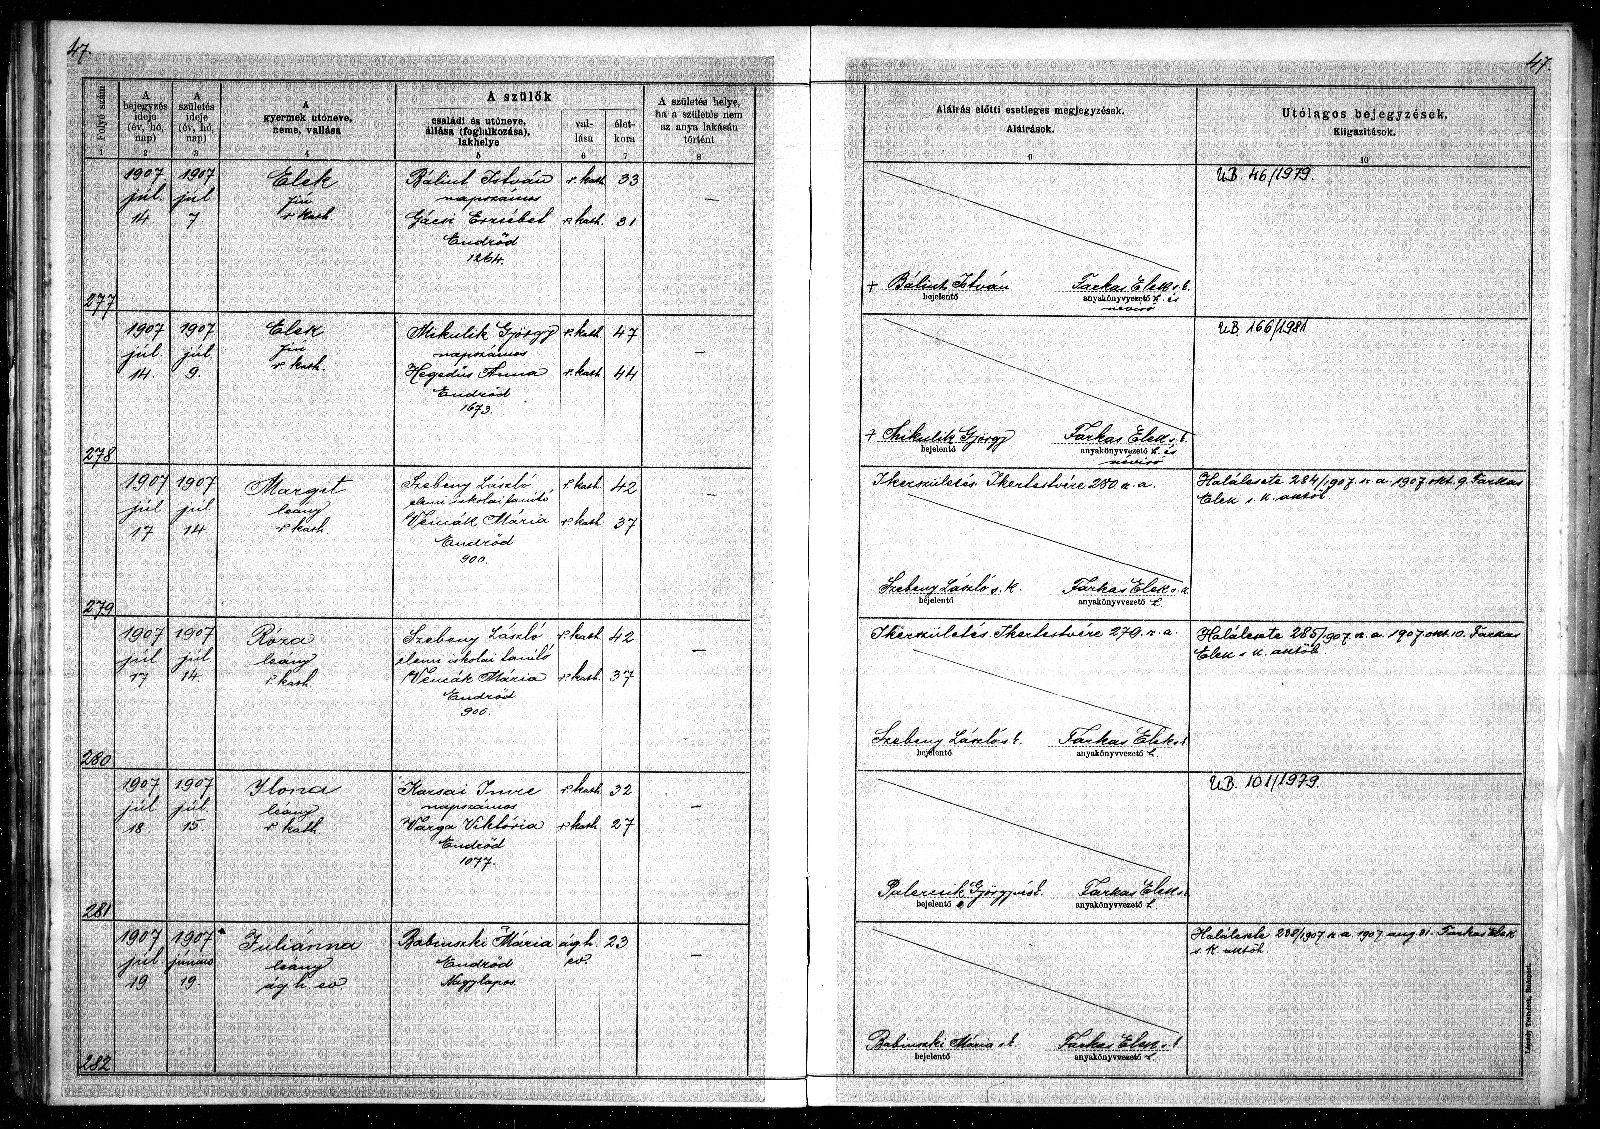 47.
47.
Folyó szám
A bejegyzés ideje (év, hó, nap)
A születés ideje (év, hó, nap)
A gyermek utóneve, neme, vallása
A szülők
családi és utóneve, állása (foglalkozása), lakhelye
vallása
életkora
A születés helye, ha a születés nem az anya lakásán történt
Aláírás előtti esetleges megjegyzések.
Aláírások.
Utólagos bejegyzések,
Kiigazítások.
1 2 3 4 5 6 7 8 9 10
277
1907 júl. 14.
1907 júl. 7
Elek
fiú
r. kath.
Bálint István r. kath. 33
napszámos
Gácsi Erzsébet r. kath. 31
Endrőd
1264.
—
+ Bálint István
bejelentő
Farkas Elek s. k.
anyakönyvvezető h. és
névíró
UB. 46/1979.
278
1907 júl. 14.
1907 júl. 9.
Elek
fiú
r. kath.
Mikulik György r. kath. 47
napszámos
Hegedűs Anna r. kath. 44
Endrőd
1673.
—
+ Mikulik György
bejelentő
Farkas Elek s. k.
anyakönyvvezető h. és
névíró
UB. 166/1981
279
1907 júl. 17
1907 júl 14
Margit
leány
r. kath.
Szebeny László r. kath. 42
elemi iskolai tanító
Vincák Mária r. kath. 37
Endrőd
900.
—
Ikerszületés. Ikertestvére 280 sz. a.
Szebeny László s. k.
bejelentő
Farkas Elek s. k.
anyakönyvvezető h.
Halálesete 284/1907 sz. a. 1907 okt. 9. Farkas
Elek s. k. aktőb
280
1907 júl 17
1907 júl 14.
Róza
leány
r. kath.
Szebeny László r. kath. 42
elemi iskolai tanító
Vincák Mária r. kath. 37
Endrőd
900.
—
Ikerszületés. Ikertestvére 279. sz. a.
Szebeny László s. k.
bejelentő
Farkas Elek s. k.
anyakönyvvezető h.
Halálesete 285/1907. sz. a. 1907. okt. 10. Farkas
Elek s. k. aktőb
281
1907 júl 18
1907 júl. 15.
Ilona
leány
r. kath.
Karsai Imre r. kath. 32
napszámos
Varga Viktória r. kath. 27
Endrőd
1077.
—
bejelentő
Farkas Elek s. k.
anyakönyvvezető h.
UB. 101/1979.
282
1907 júl 19
1907 június 19.
Juliánna
leány
ágh. ev.
Babinszki Mária ágh. ev. 23
Endrőd
Nagylapos.
—
Babinszki Mária s. k.
bejelentő
Farkas Elek s. k.
anyakönyvvezető h.
Halálesete 1907 sz. a. 1907. aug. 31. Farkas Elek
s. k. aktőb